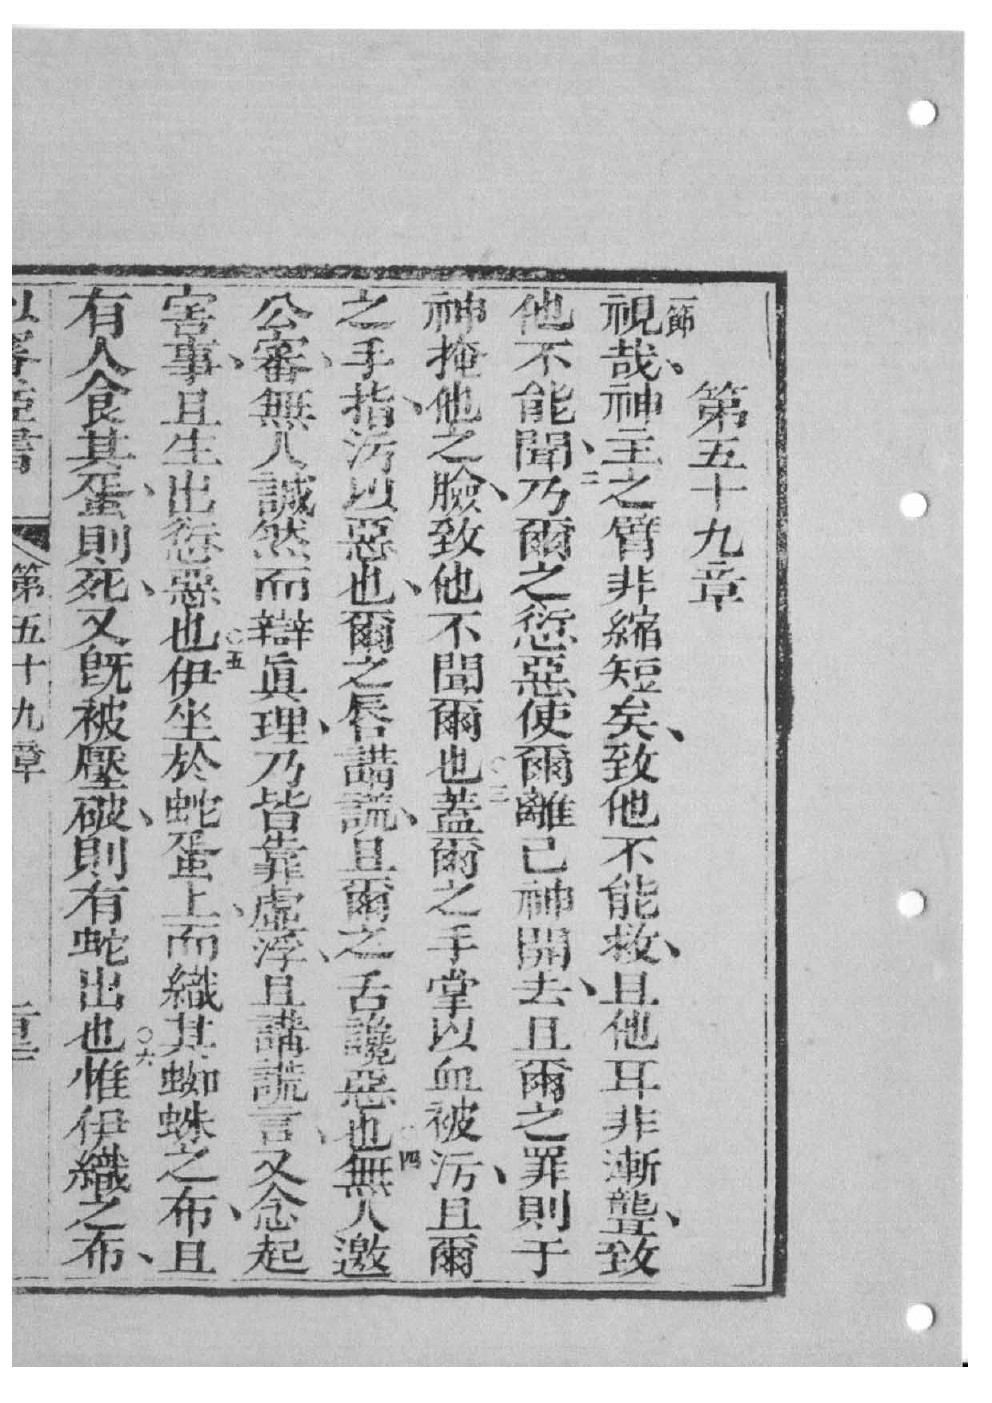 第五十九章
一節視哉、神主之臂非縮短矣、致他不能救、且他耳非漸聾、致
他不能聞、二乃爾之愆惡使爾離己神開去、且爾之罪則于
神掩他之臉、致他不聞爾也○三蓋爾之手掌以血被污、且爾
之手指、污以惡也、爾之唇講謊、且爾之舌讒惡也○四無人邀
公審、無人誠然而辯眞理、乃皆靠虛浮、且講謊言、又念起
害事、且生出愆惡也○五伊坐於蛇蛋上、而織其蜘蛛之布、且
有人食其蛋、則死、又旣被壓破、則有蛇出也○六惟伊織之布、
第五十九章